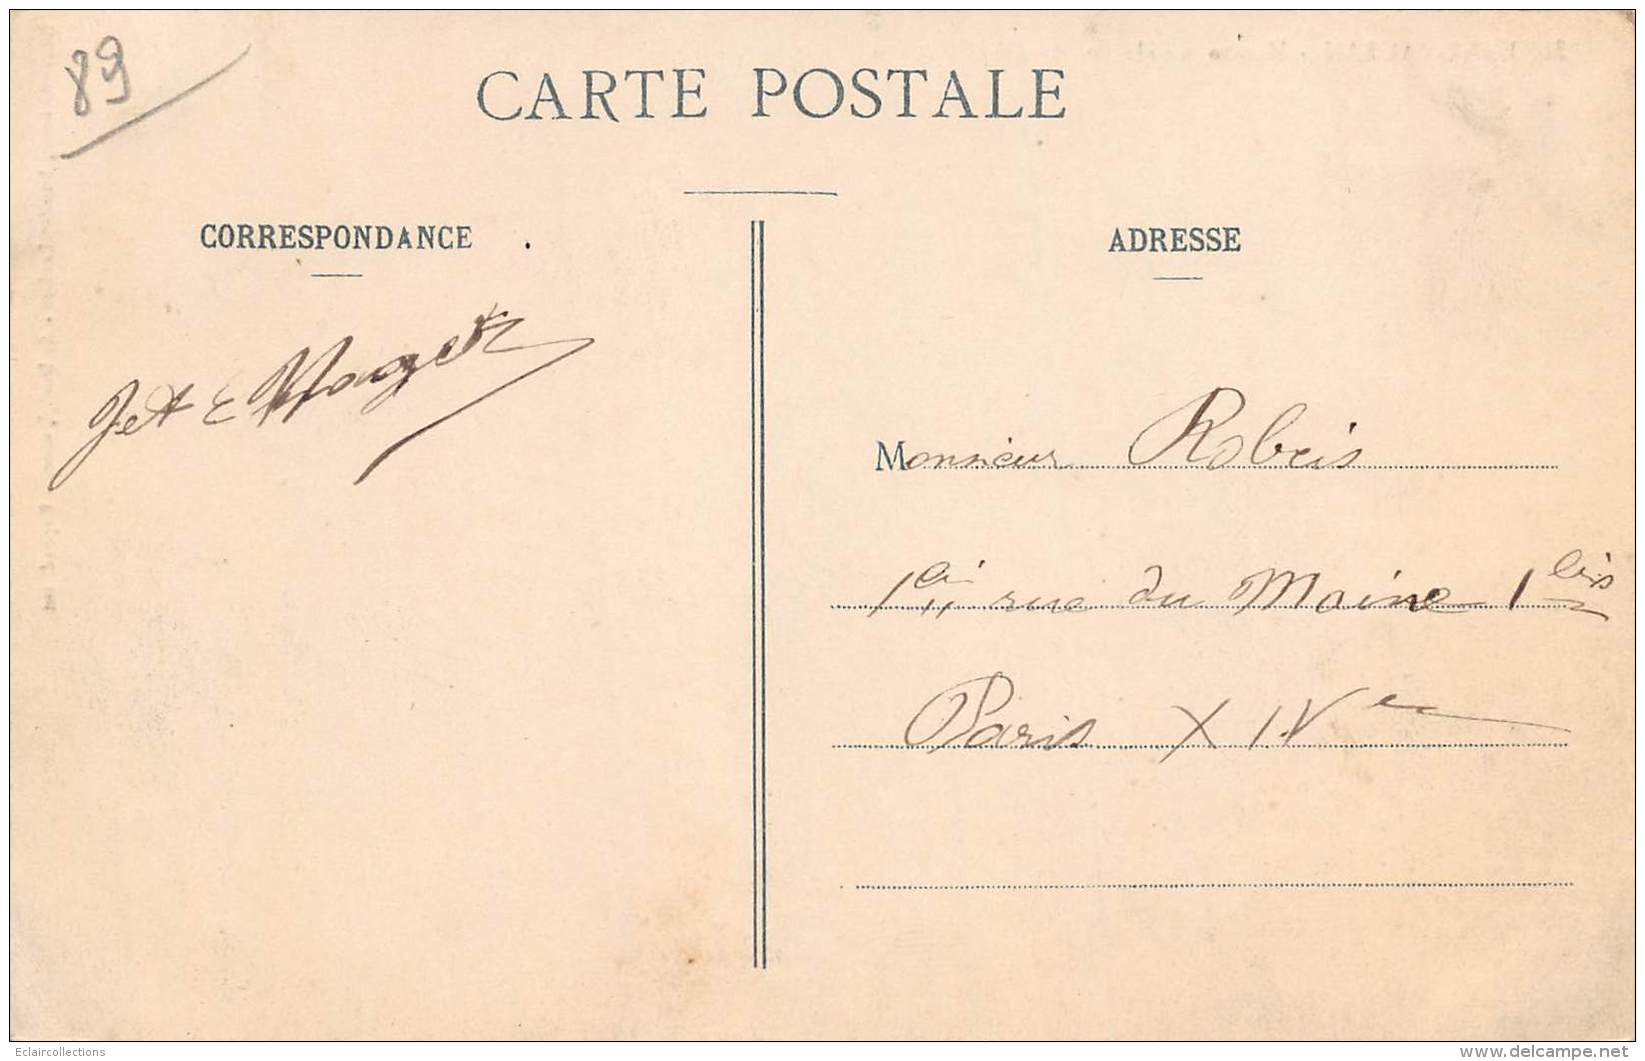 89
CARTE POSTALE
CORRESPONDANCE
ADRESSE
Monsieur Robris
rue du Maine 1 bis
Paris XIVe
Eclaircollections
delcampe.net